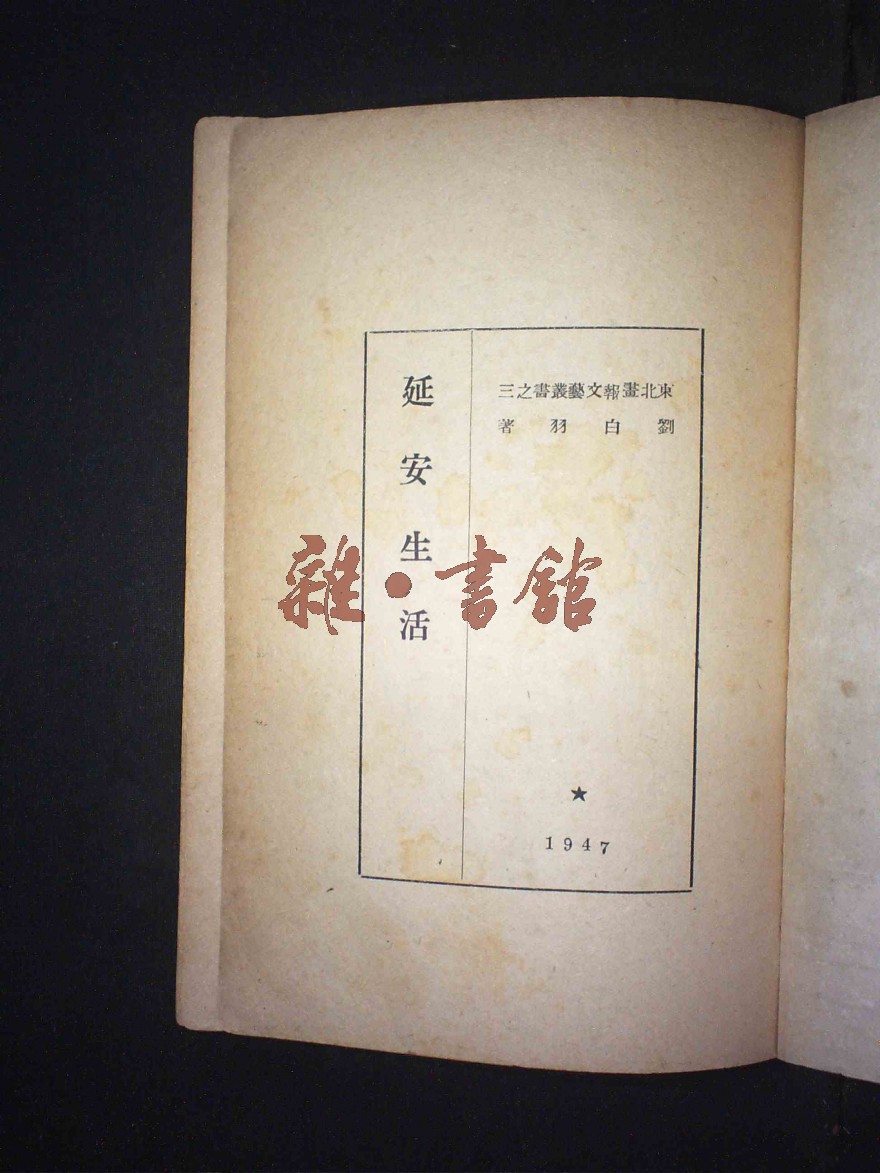 東北畫報文藝叢書之三
劉白羽著
延安生活
★
1947
雜·書館